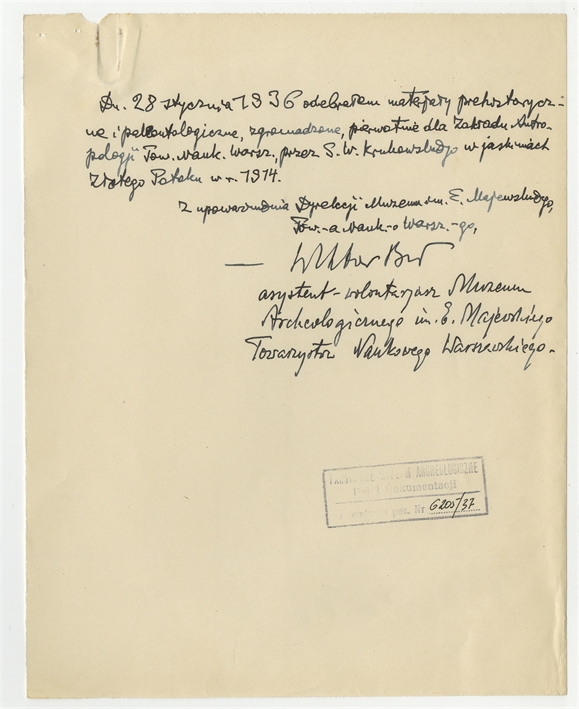 Dn. 28 stycznia 1936 odebrałem materjały prehistorycz-
ne i paleontologiczne, zgromadzone, pierwotnie dla Zakładu Antro-
pologji Tow. Nauk. Warsz., przez S. W. Krukowskiego w jaskiniach
Złotego Potoku w r. 1914.
Z upoważnienia Dyrekcji Muzeum im. E. Majewskiego,
Tow.-a Nauk-o Warsz.-go,
asystent-wolontarjusz Muzeum
Archeologicznego im. E. Majewskiego
Towarzystw Naukowego Warszawskiego.-
ARCHEOLOGICZNE
Dokumentacji
poz. Nr 6205/37